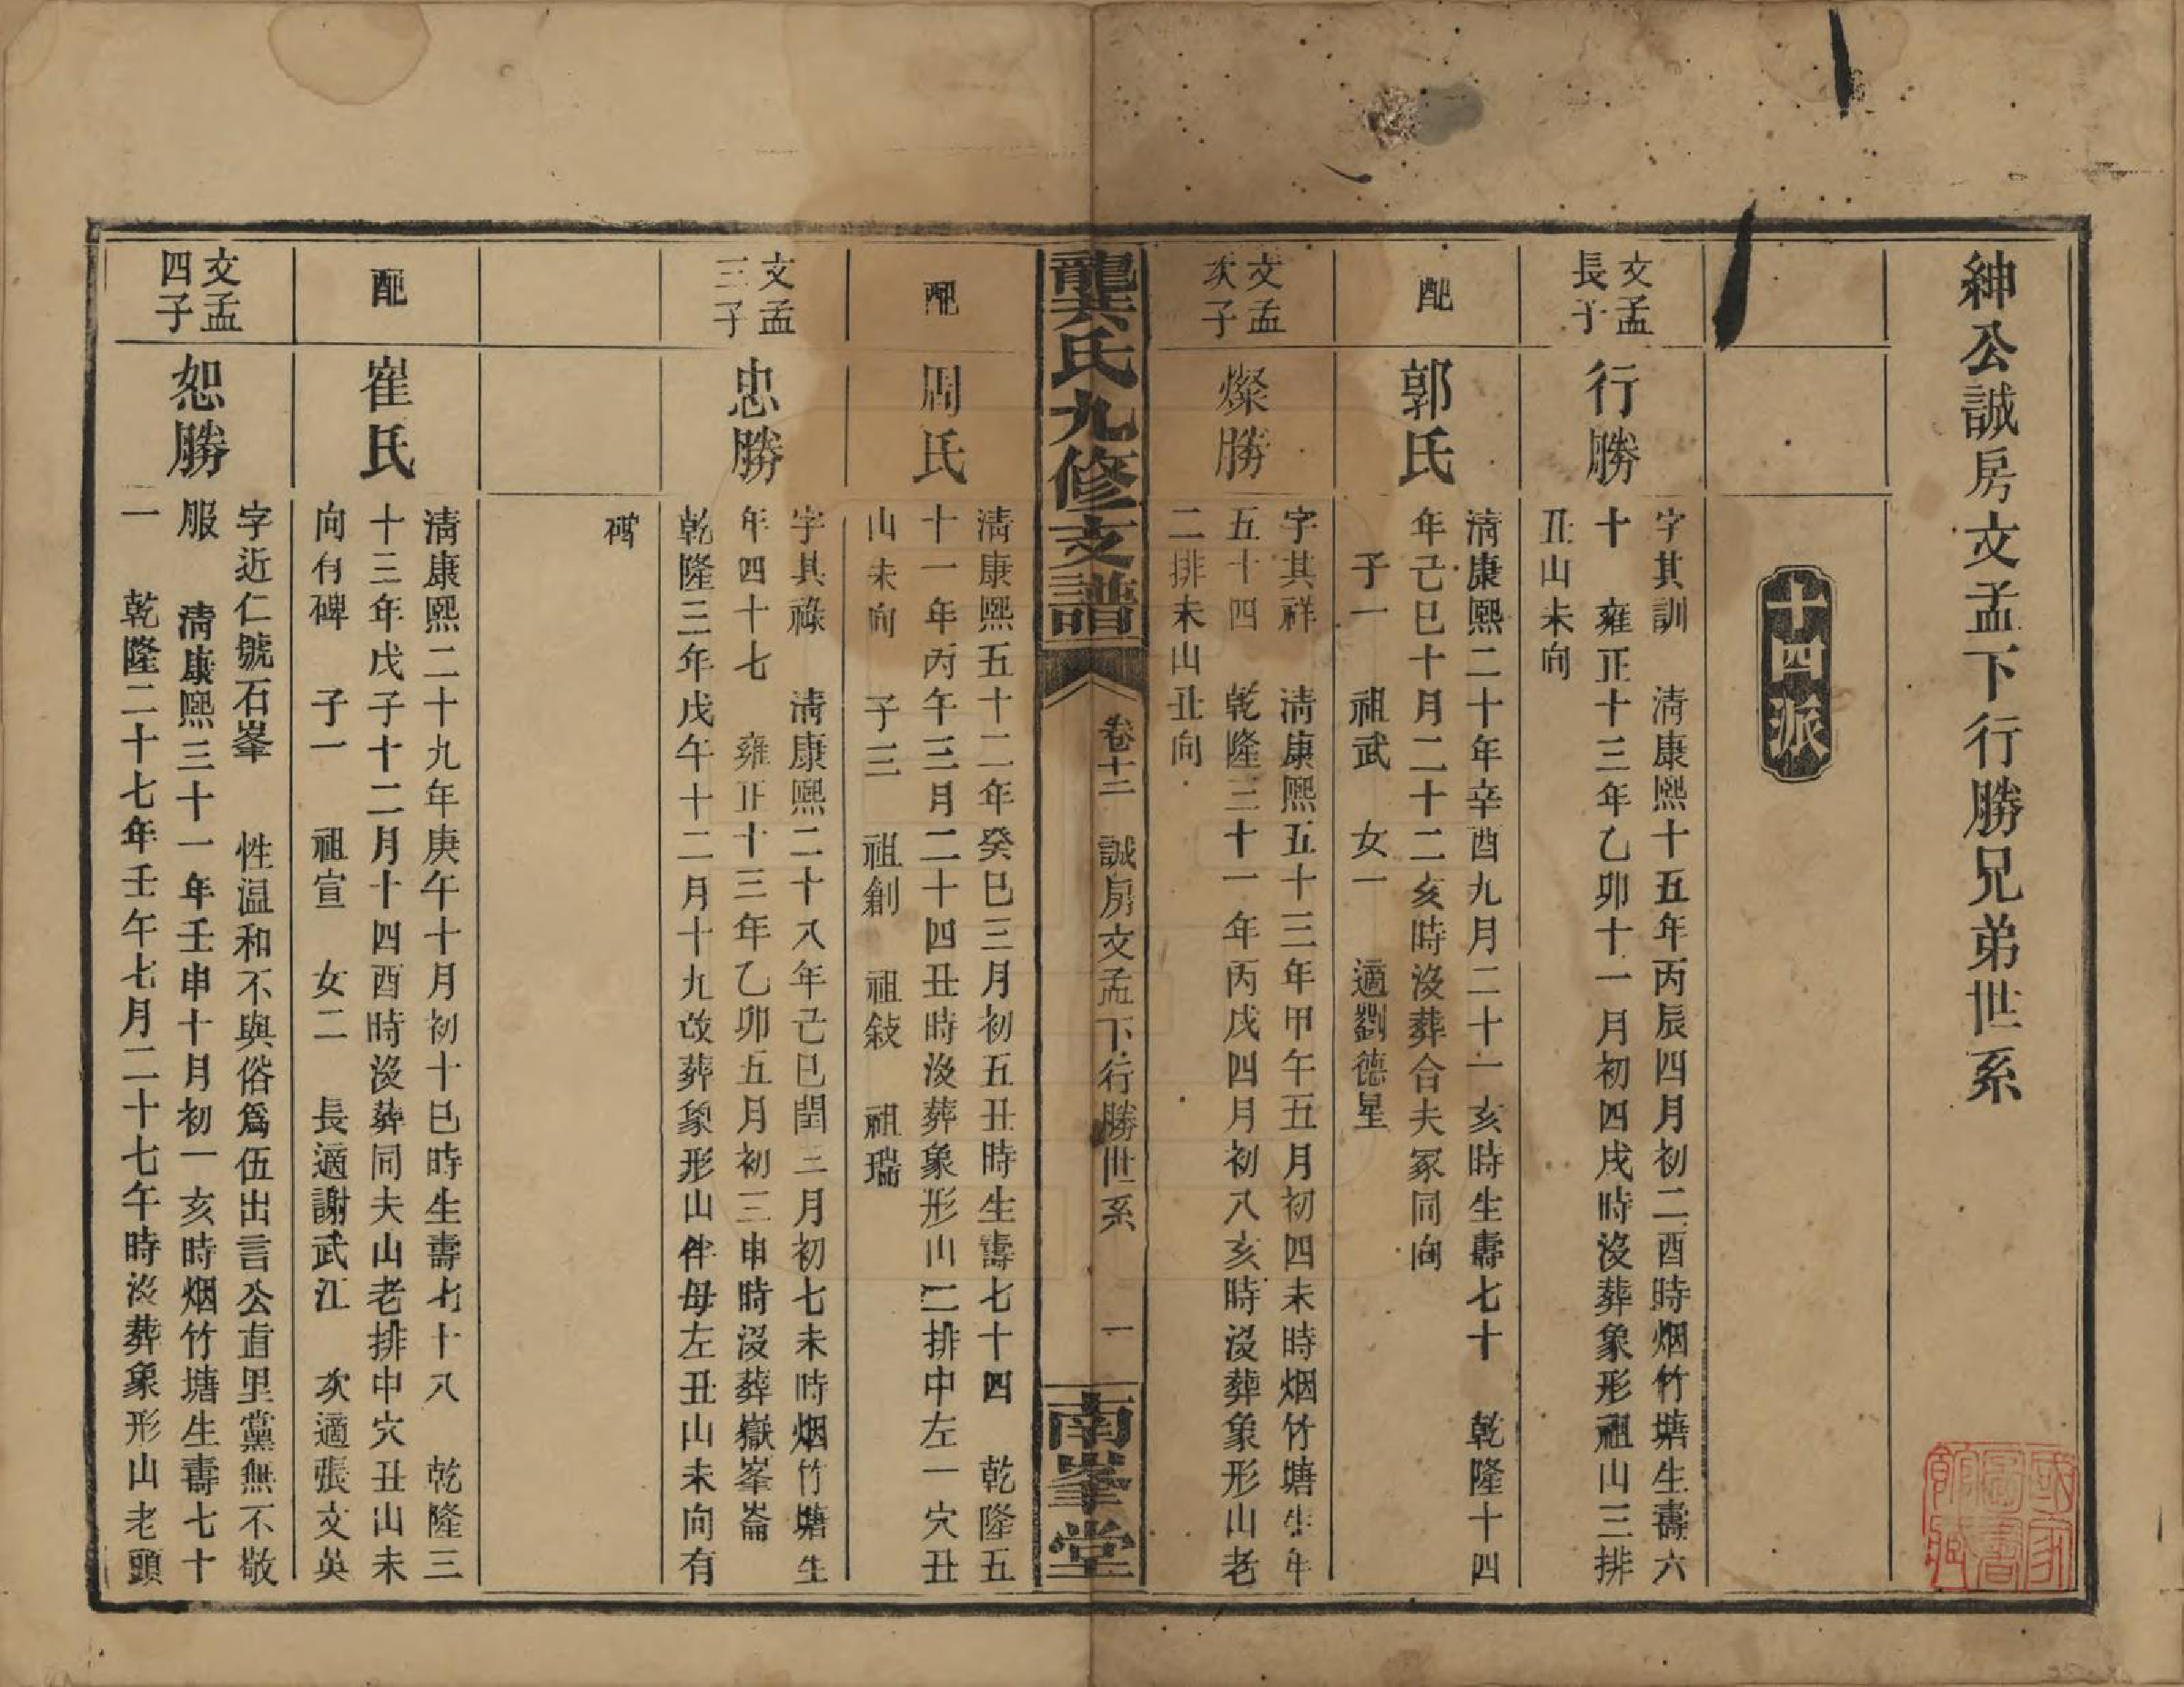 紳公誠房文孟下行勝兄弟世系
十四派
文孟
長子
行勝
字其訓　清康熙十五年丙辰四月初二酉時烟竹塘生壽六
十　雍正十三年乙卯十一月初四戌時沒葬象形祖山三排
丑山未向
配
郭氏
清康熙二十年辛酉九月二十一亥時生壽七十　乾隆十四
年己巳十月二十二亥時沒葬合夫冢同向
子一　祖武　女一　適劉德星
文孟
次子
燦勝
字其祥　清康熙五十三年甲午五月初四未時烟竹塘生年
五十四　乾隆三十一年丙戌四月初八亥時沒葬象形山老
二排未山丑向
龔氏九修支譜
卷十二　誠房文孟下行勝世系
一
南峯堂
配
周氏
清康熙五十二年癸巳三月初五丑時生壽七十四　乾隆五
十一年丙午三月二十四丑時沒葬象形山二排中左一穴丑
山未向　子三　祖創　祖敍　祖瑞
文孟
三子
忠勝
字其祿　清康熙二十八年己巳閏三月初七未時烟竹塘生
年四十七　雍正十三年乙卯五月初三申時沒葬嶽峯崙
乾隆三年戊午十二月十九改葬象形山伴母左丑山未向有
碑
配
崔氏
清康熙二十九年庚午十月初十巳時生壽七十八　乾隆三
十三年戊子十二月十四酉時沒葬同夫山老排中穴丑山未
向有碑　子一　祖宣　女二　長適謝武江　次適張文英
文孟
四子
恕勝
字近仁號石峯　性温和不與俗爲伍出言公直里黨無不敬
服　清康熙三十一年壬申十月初一亥時烟竹塘生壽七十
一　乾隆二十七年壬午七月二十七午時沒葬象形山老頭
國家圖書館藏